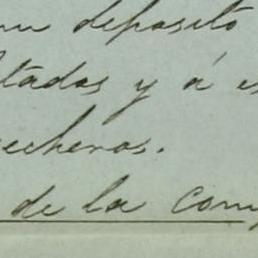 un deposito
tadas y á es
echeros.
de la Com